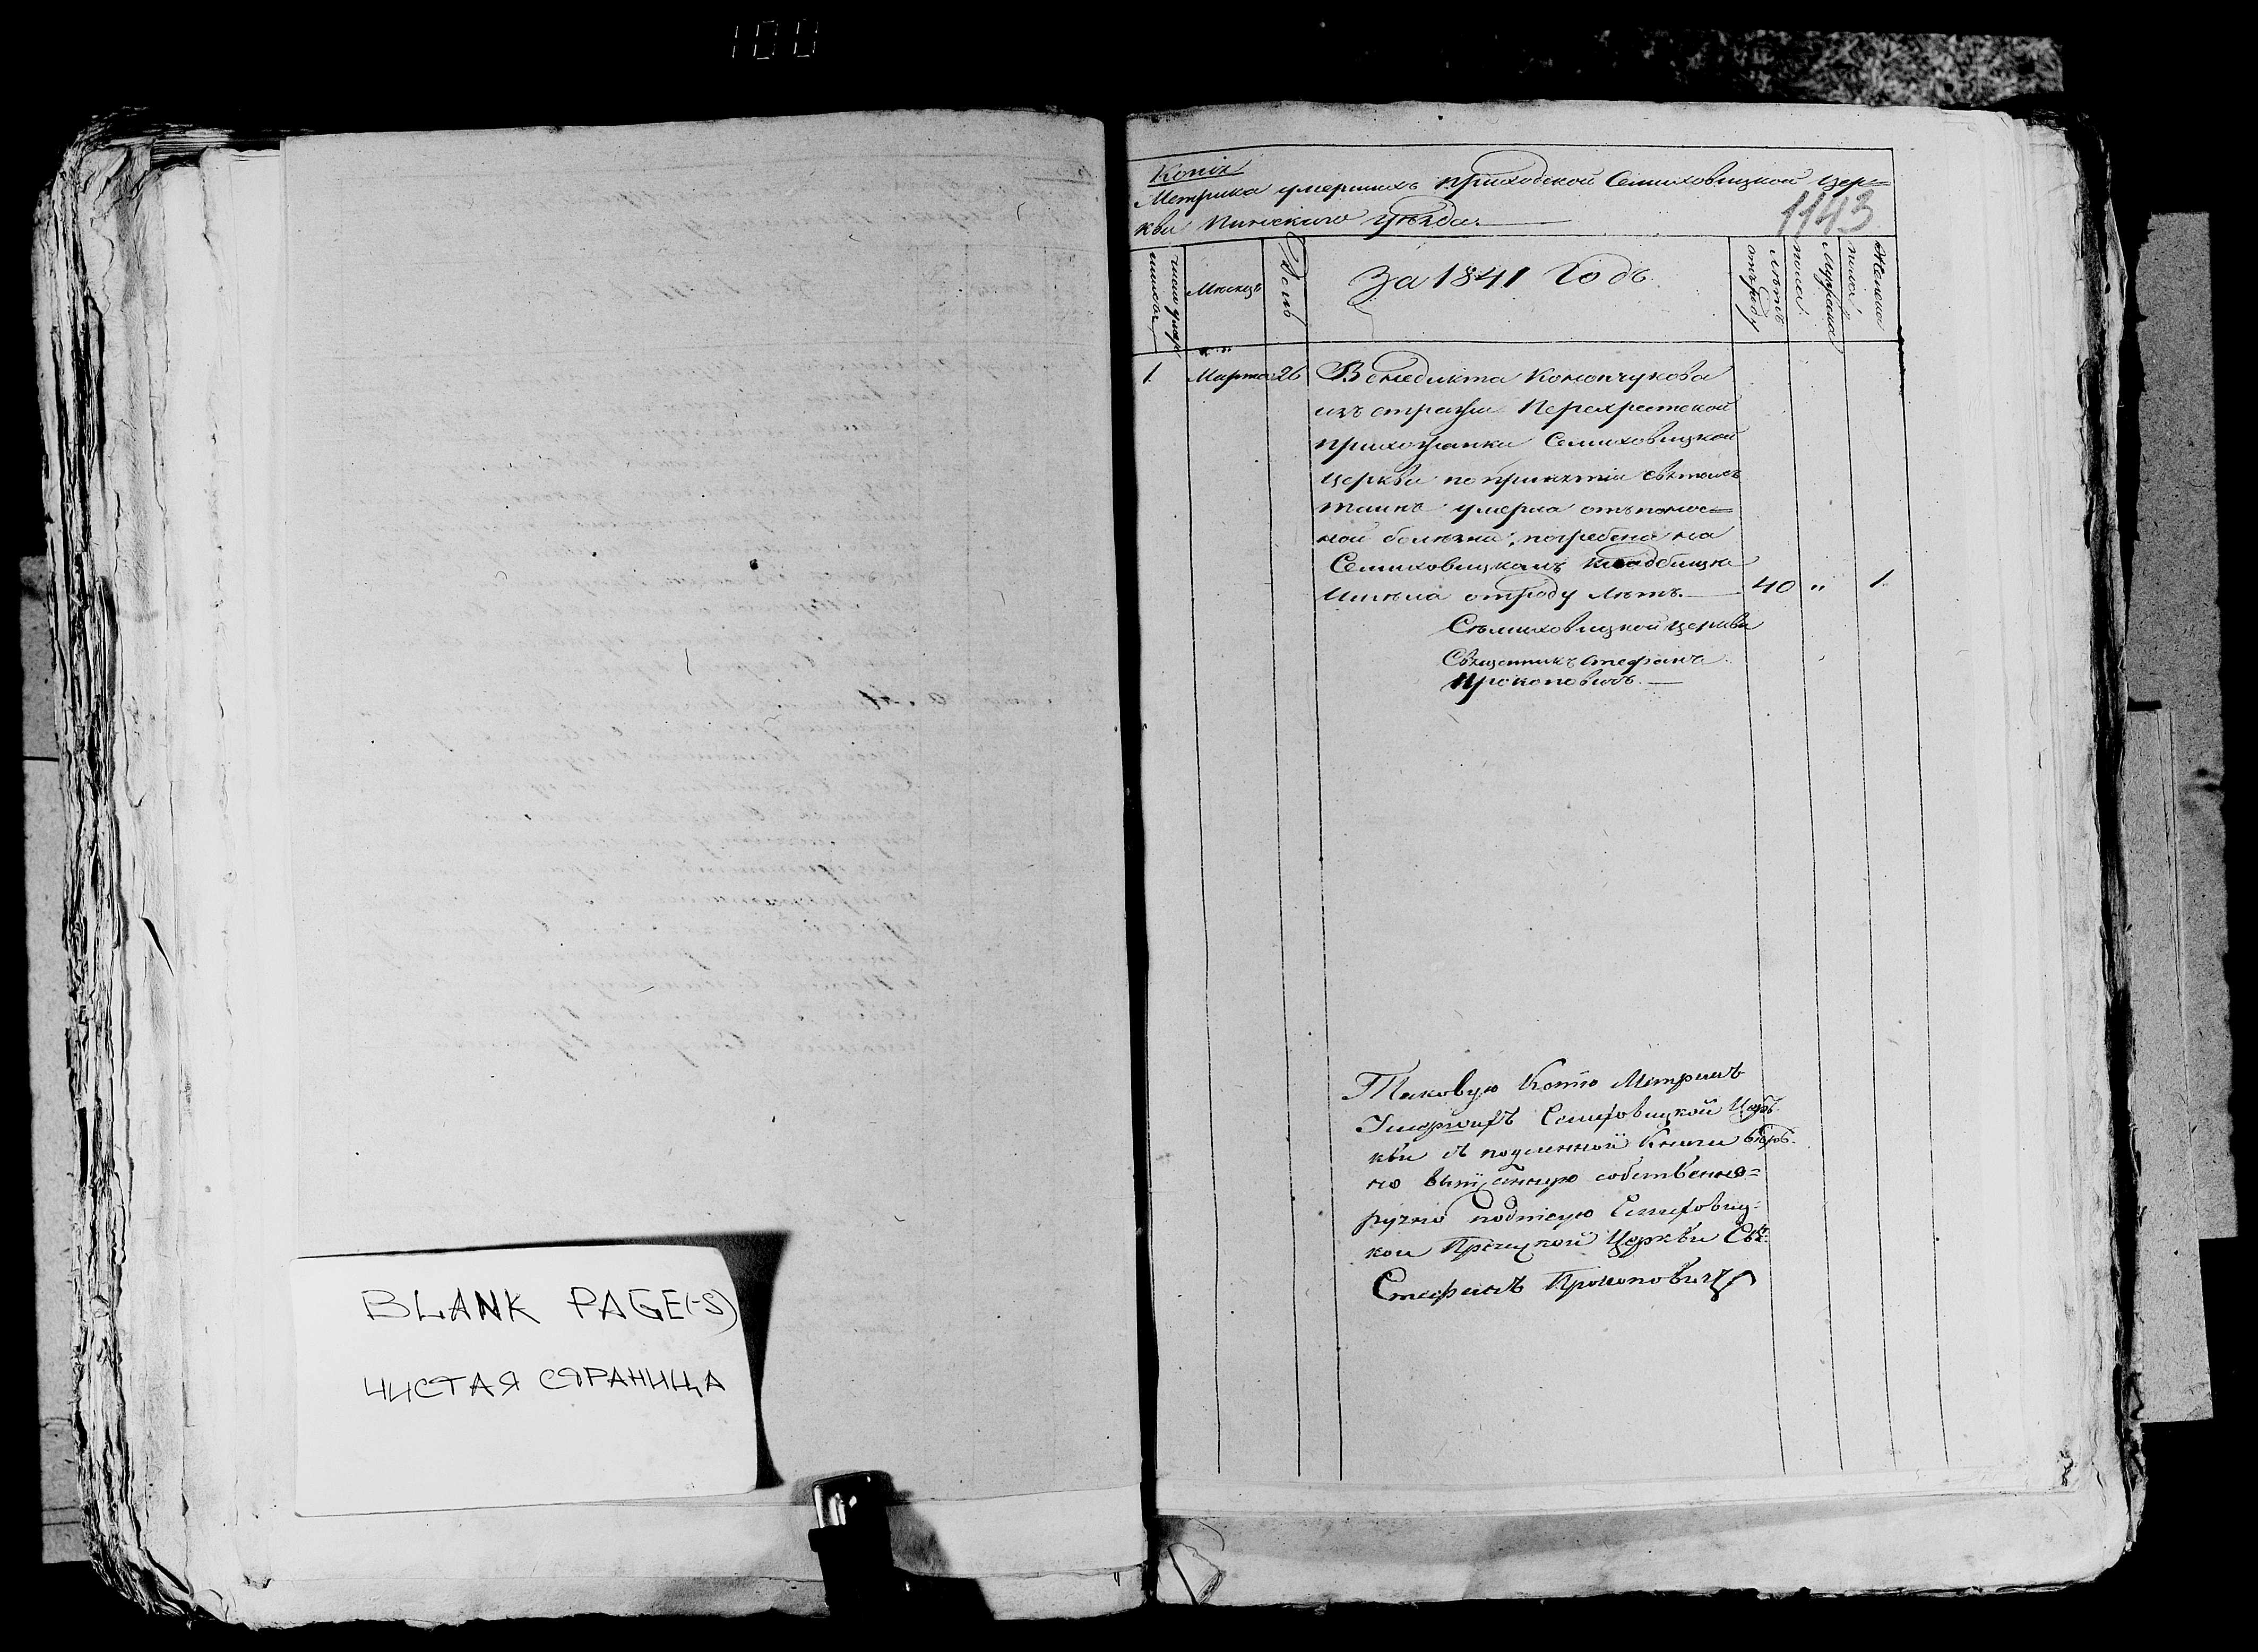 100
BLANK PAGE(-S)
ЧИСТАЯ СТРАНИЦА
Копія
Метрика умершихъ приходской Семиховицкой Цер=
кви Пинскаго уѣзда.
1143
число умер
шихъ
Мѣсяцъ
День
За 1841 Годъ
Лѣтъ
отъ роду
Мужеска
пола
Женска
пола
1. Марта 26 Бенедикта Конончукова
изъ стражи Перехрестской
прихожанка Семиховицкой
церкви по принятіи святыхъ
таинъ умерла отъ понос=
ной болѣзни, погребена на
Семиховицкомъ кладбищѣ
Имѣла отроду лѣтъ. 40 " 1.
Сѣмиховицкой церкви
Священникъ Стефанъ
Прокоповичъ.
Таковую Копію Метрикъ
Умершихъ Семиховицкой Цер=
кви съ подлинной Книги вѣр=
но выписанную собственно=
ручно подписую Семиховиц=
кой Церкви Свя:
Стефанъ Прокоповичъ